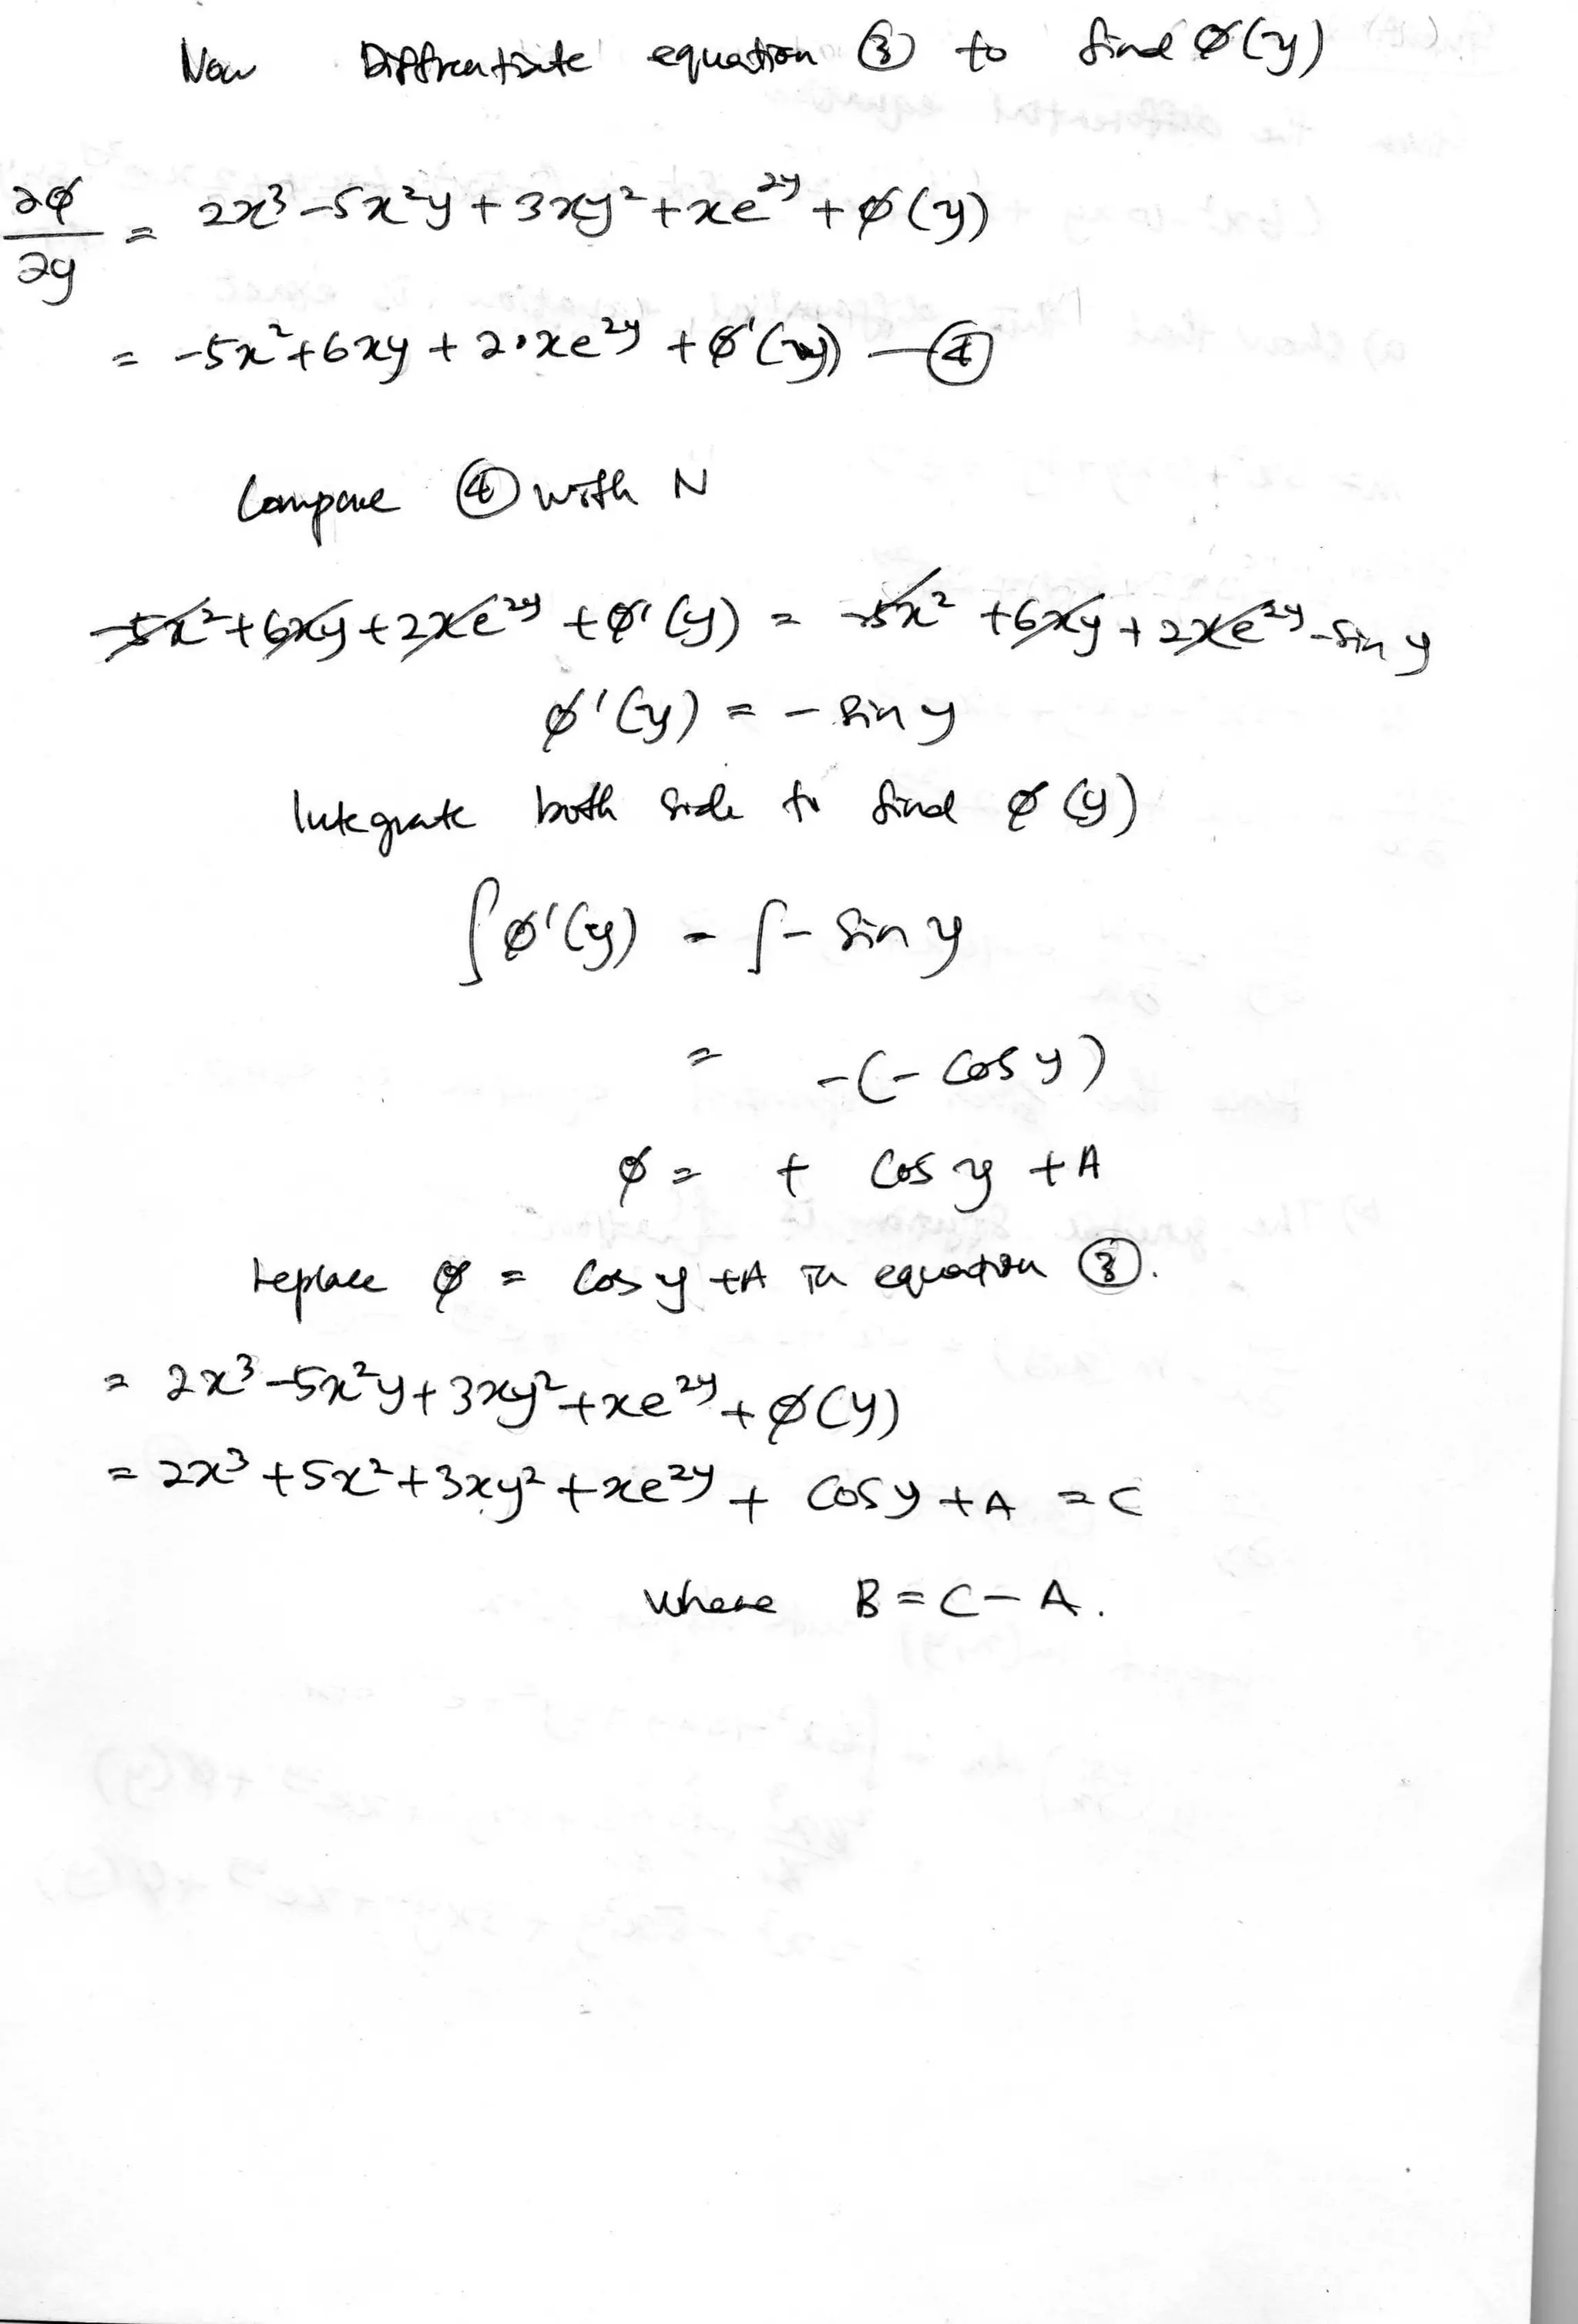 Now Diffrentiate equation ③ to find ø(y)
∂ø/∂y = 2x³ -5x²y + 3xy² + xe²ʸ + ø(y)
= -5x² + 6xy + 2·xe²ʸ + ø'(y) — ④
Compare ④ with N
-5x² + 6xy + 2xe²ʸ + ø'(y) = -5x² + 6xy + 2xe²ʸ - sin y
ø'(y) = - sin y
Integrate both side to find ø(y)
∫ø'(y) = ∫- sin y
= -(- cos y)
ø = + cos y + A
replace ø = cos y + A in equation ③.
= 2x³ -5x²y + 3xy² + xe²ʸ + ø(y)
= 2x³ + 5x² + 3xy² + xe²ʸ + cos y + A = C
where B = C - A.